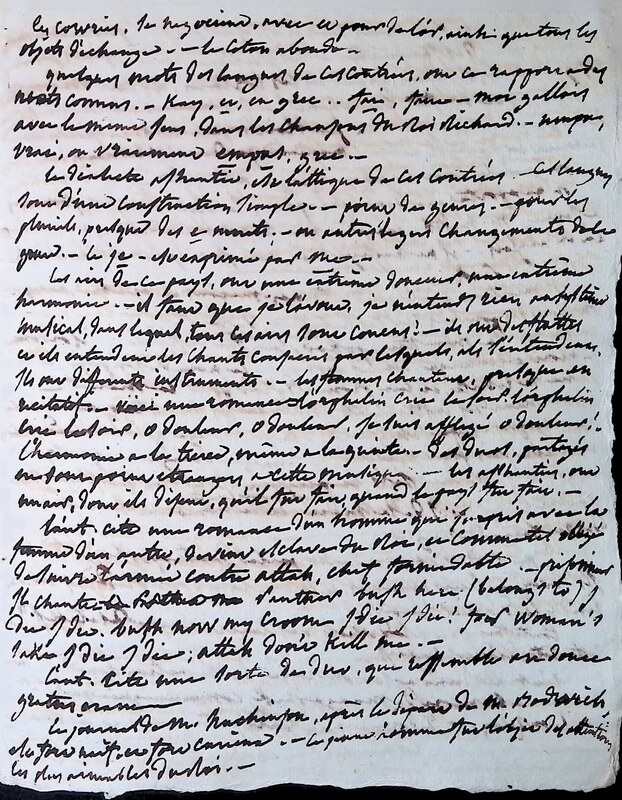 les cowries, le negocient, avec ce pour de l'or, ainsi que tous les
objets d'echange. — le coton abonde. —
quelques mots des langues de ces contrées, ont ce rapport a des
mots connus. — Kay, et, en grec .. fair, faire — mot gallois
avec le meme sens, dans les chansons du Roi Richard. —
vrai, ou vraiement empat, grec. —
le dialecte ashantie, est l'attique de ces contrées. — Ces langues
sont d'une construction simple. — point de genres. — pour les
pluriels, presque des e muets. — ou autres legers changements de la
— le je — est exprimé par me. —
Les airs de ce pays, ont une extrême douceur, une extrême
harmonie. — il faut que je l'avoue, je n'entends rien au systême
musical, dans lequel, tous ces airs sont conçus! — ils ont des flattes
et ils entendent les chants composés par lesquels, ils s'entendent.
Ils ont différents instruments. — les femmes chantent, presque en
recitatif. — voici une romance — l'orphelin crie le soir, l'orphelin
crie le soir, o douleur, o douleur, je suis affligé o douleur! —
l'harmonie a la tierce, même a la quinte. — Des duos, partagés
en sont point etrangers, a cette musique. — les ashanties, ont
un air, dont ils disent, qu'il fut fait, quand le pays fut fait. —
l'aut. cite une romance d'un homme qui surpris avec la
femme d'un autre, devint esclave du Roi, et comme tel obligé
de suivre l'armée contre attah, chef formidable. — prisonnier
Il chante bush here (belongs to) I
die I die. bush now my croom I die I die! for woman's
sake I die I die; attah don't kill me. —
l'aut. cite une sorte de duo, qui ressemble au douce
Le journal de M. Hutchinson, après le départ de M. Bodwich,
est fort neuf, et fort curieux. — Le jeune homme fut l'objet des attentions
les plus aimables du roi. —